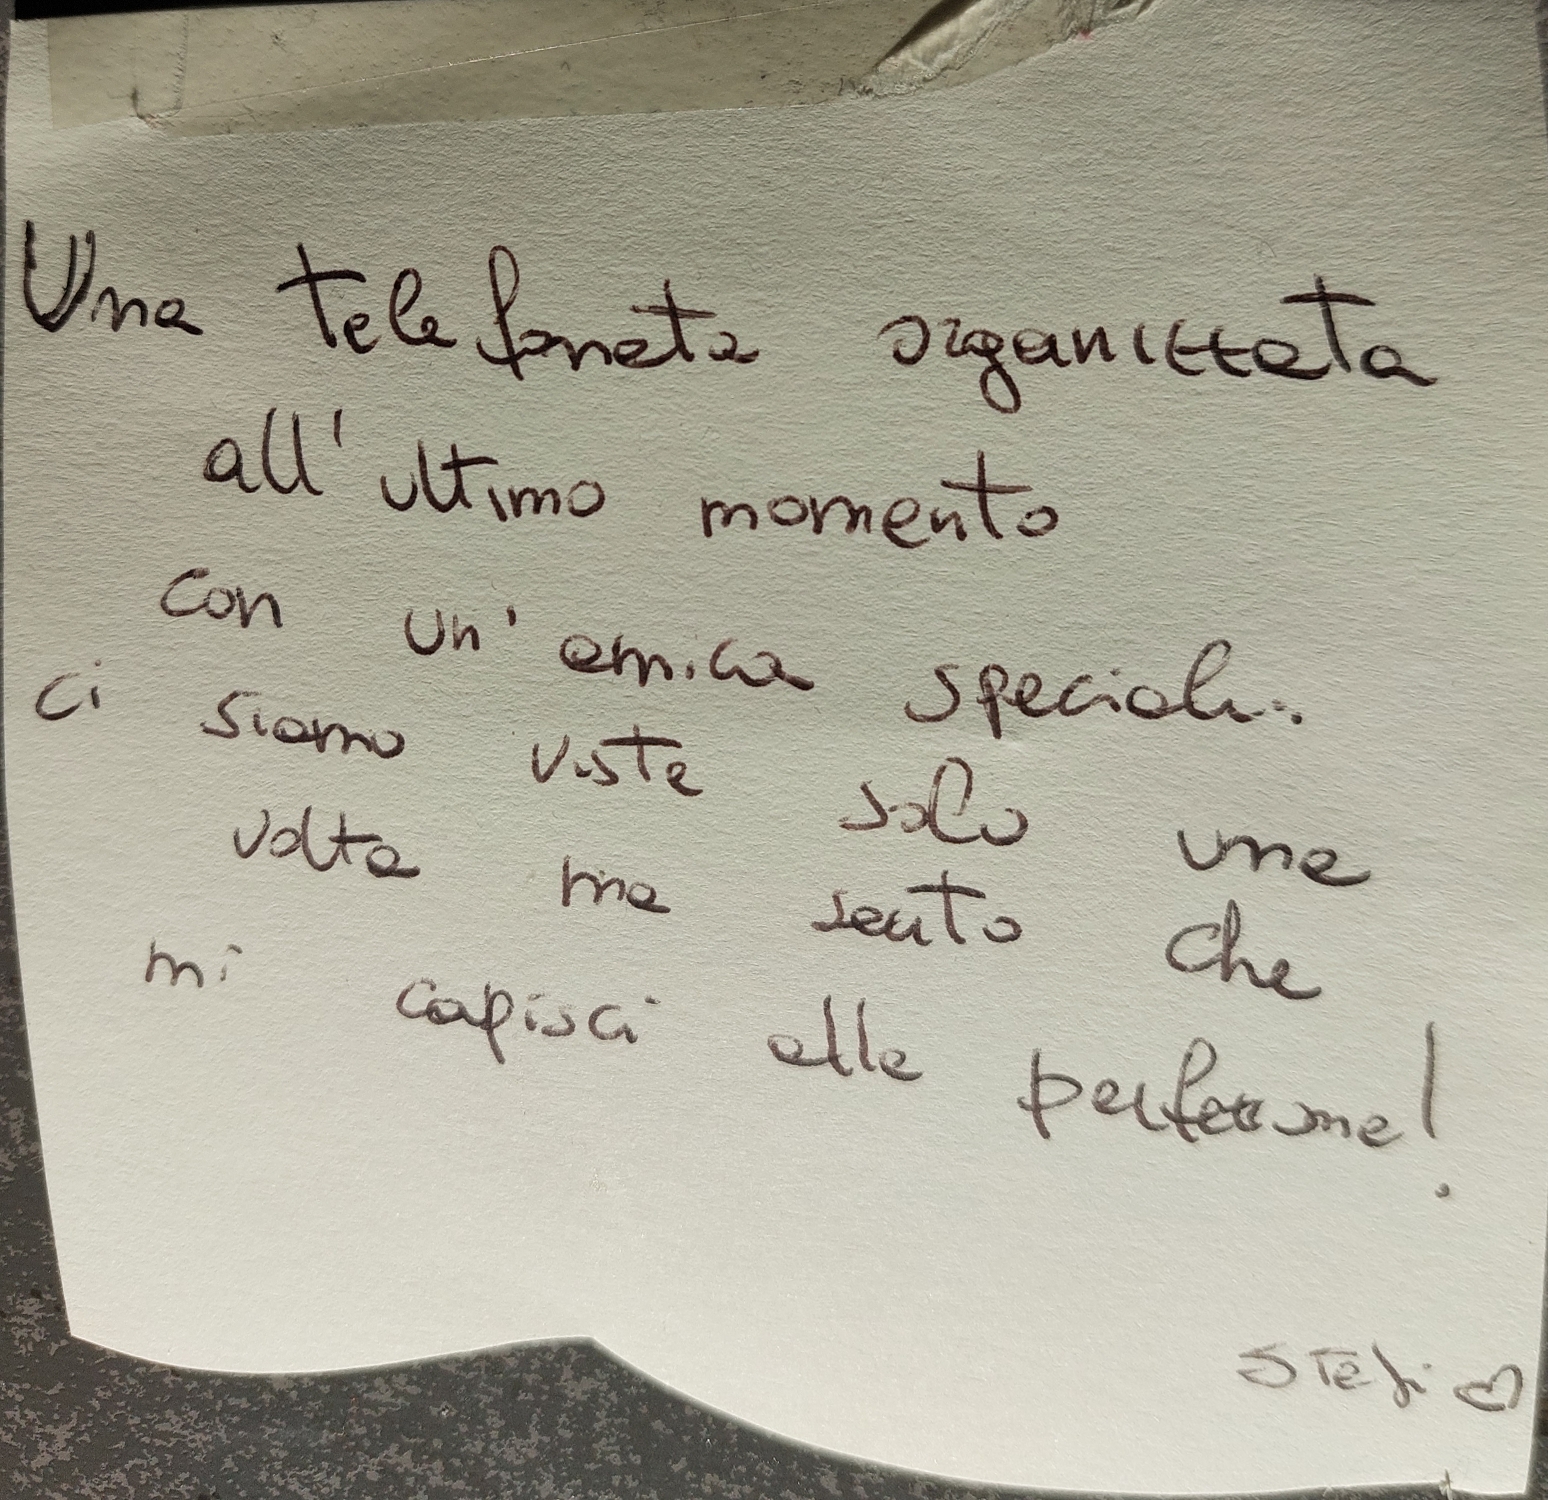 Una telefonata organizzata
all'ultimo momento
con un'amica speciale..
ci siamo viste solo una
volta ma sento che
mi capisci alla perfezione!
Stefi ♡